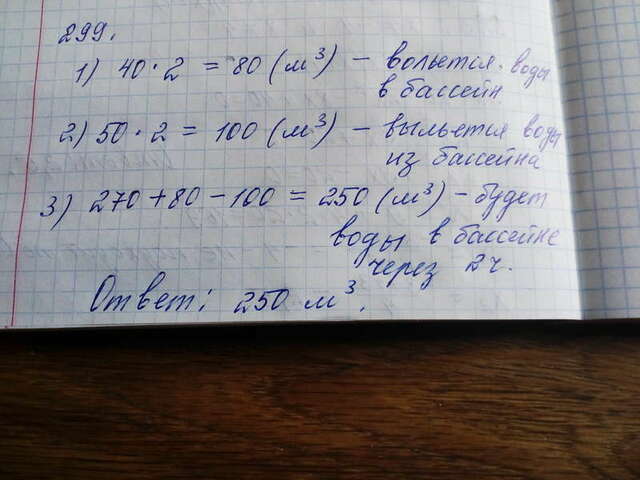 299.
1) 40 · 2 = 80 (м³) – вольется воды
в бассейн
2) 50 · 2 = 100 (м³) – выльется воды
из бассейна
3) 270 + 80 – 100 = 250 (м³) – будет
воды в бассейне
через 2 ч.
Ответ: 250 м³.